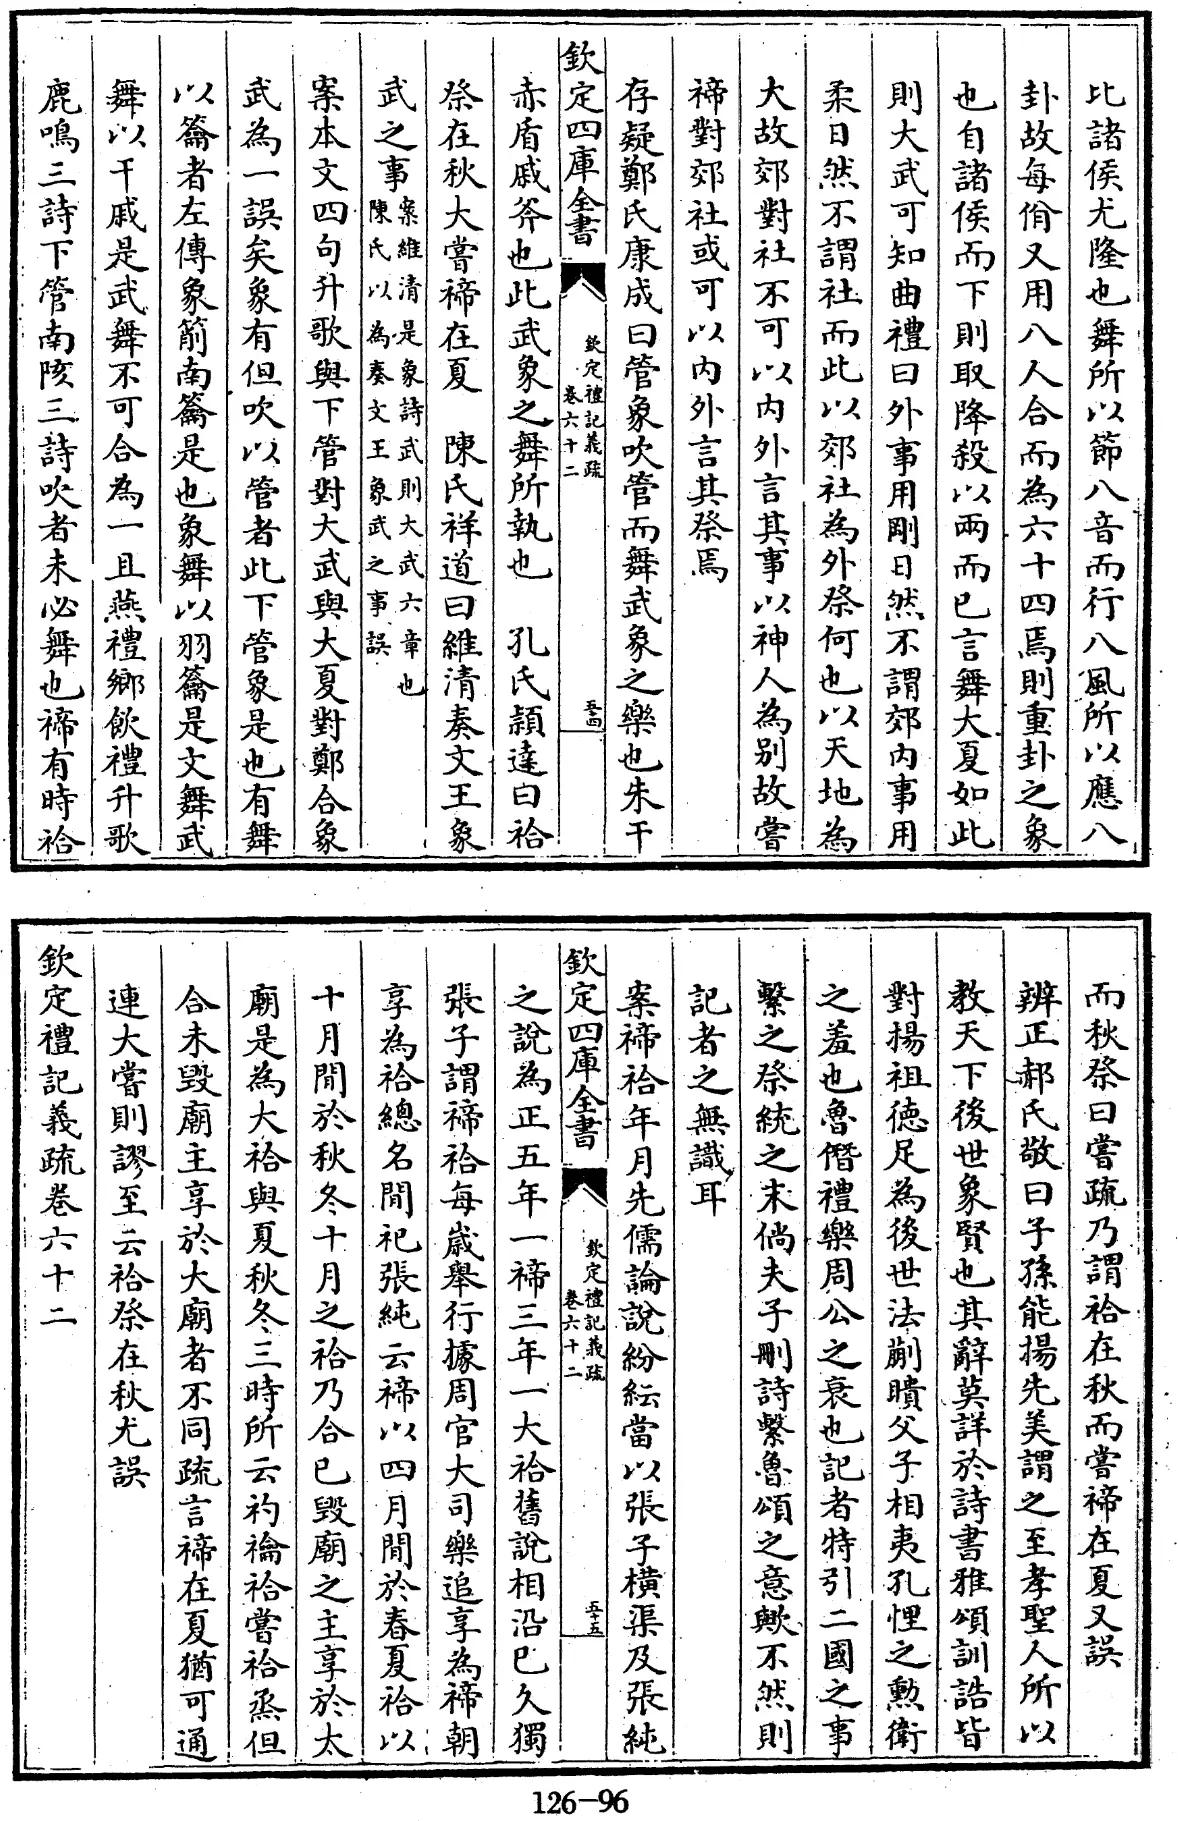 比諸侯尤隆也舞所以節八音而行八風所以應八
卦故每佾又用八人合而為六十四焉則重卦之象
也自諸侯而下則取降殺以兩而已言舞大夏如此
則大武可知曲禮曰外事用剛日然不謂郊内事用
柔日然不謂社而此以郊社為外祭何也以天地為
大故郊對社不可以内外言其事以神人為别故嘗
禘對郊社或可以内外言其祭焉
存疑鄭氏康成曰管象吹管而舞武象之樂也朱干
欽定四庫全書
欽定禮記義疏
卷六十二
五十四
赤盾戚斧也此武象之舞所執也　孔氏頴達曰祫
祭在秋大嘗禘在夏　陳氏祥道曰維清奏文王象
武之事
案維清是象詩武則大武六章也
陳氏以為奏文王象武之事誤
案本文四句升歌與下管對大武與大夏對鄭合象
武為一誤矣象有但吹以管者此下管象是也有舞
以籥者左傳象箾南籥是也象舞以羽籥是文舞武
舞以干戚是武舞不可合為一且燕禮鄉飲禮升歌
鹿鳴三詩下管南陔三詩吹者未必舞也禘有時祫
而秋祭曰嘗疏乃謂祫在秋而嘗禘在夏又誤
辨正郝氏敬曰子孫能揚先美謂之至孝聖人所以
教天下後世象賢也其辭莫詳於詩書雅頌訓誥皆
對揚祖徳足為後世法蒯聵父子相夷孔悝之勲衛
之羞也魯僭禮樂周公之衰也記者特引二國之事
繫之祭統之末倘夫子刪詩繫魯頌之意歟不然則
記者之無識耳
案禘祫年月先儒論説紛紜當以張子横渠及張純
欽定四庫全書
欽定禮記義疏
卷六十二
五十五
之説為正五年一禘三年一大祫舊説相沿已久獨
張子謂禘祫每歳舉行據周官大司樂追享為禘朝
享為祫總名閒祀張純云禘以四月閒於春夏祫以
十月閒於秋冬十月之祫乃合已毀廟之主享於太
廟是為大祫與夏秋冬三時所云礿禴祫嘗祫烝但
合未毀廟主享於大廟者不同疏言禘在夏猶可通
連大嘗則謬至云祫祭在秋尤誤
欽定禮記義疏卷六十二
126-96